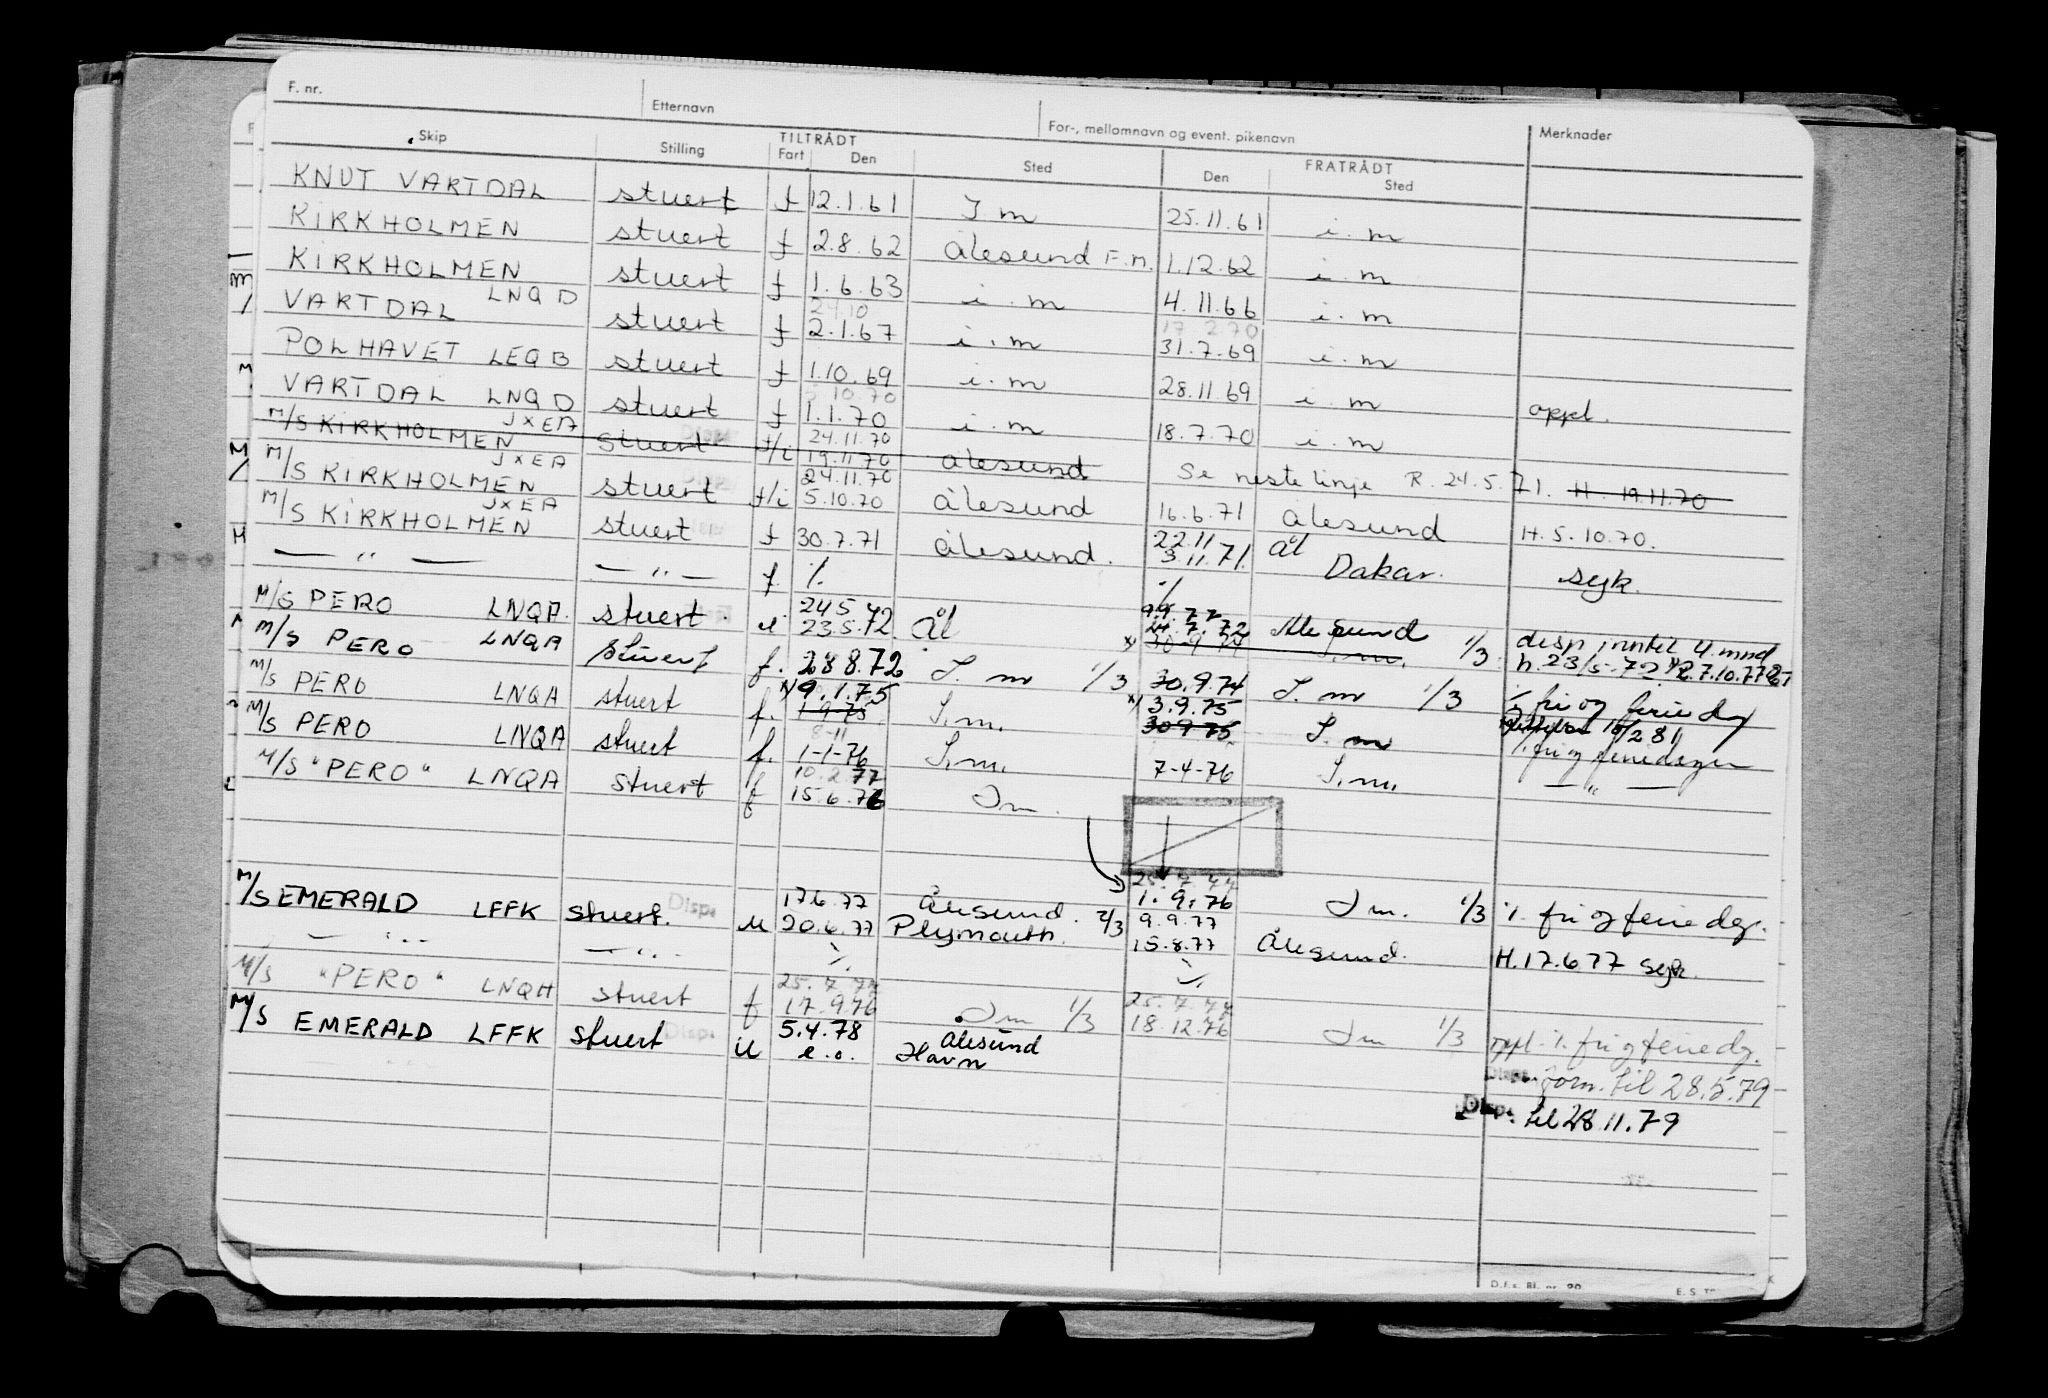 F. nr. Etternavn For-, mellomnavn og event. pikenavn Merknader
Skip Stilling TILTRÅDT FRATRÅDT
Fart Den Sted Den Sted
KNUT VARTDAL stuert f 12.1.61 I m 25.11.61 i.m
KIRKHOLMEN stuert f 2.8.62 Ålesund F.m. 1.12.62 i.m
KIRKHOLMEN stuert f 1.6.63 i.m 4.11.66 i.m
LNQD 24.10 17.2.70
VARTDAL stuert f 2.1.67 i.m 31.7.69 i.m
POLHAVET LEQB stuert f 1.10.69 i.m 28.11.69 i.m
VARTDAL LNQD stuert f 1.1.70 i.m 18.7.70 i.m oppl.
JXEA 24.11.70
M/S KIRKHOLMEN stuert f/i 19.11.70 Ålesund Se neste linje R. 24.5.71. H. 19.11.70
JXEA 24.11.70
M/S KIRKHOLMEN stuert f/i 5.10.70 Ålesund 16.6.71 Ålesund H. 5.10.70.
JXEA 22.11 Ål
M/S KIRKHOLMEN stuert f 30.7.71 Ålesund. 3.11.71. Dakar. syk.
— " — — " — f. ./. ./.
24.5
M/S PERO LNQA. stuert u 23.5.72. Ål 24.7.72 Ålesund 1/3 disp inntil 4 mnd
M/S PERO LNQA stuert f. 28.8.72 I. m 1/3 30.9.74 I. m 1/3 ./. fri og feriedag
9.1.75 3.9.75
M/S PERO LNQA stuert f. 1.9.75 I.m. 30.9.75 I. m
8-11
M/S PERO LNQA stuert f. 1-1-76 I.m. 7-4-76 I.m. ./. fri og feriedager
10.2.77
M/S "PERO" LNQA stuert f 15.6.76 I m. — " —
25.7.77
1.9.76 I m. 1/3 ./. fri og feriedg.
17.6.77 Ålesund. 2/3 9.9.77
M/S EMERALD LFFK stuert. Disp. u 20.6.77 Plymouth. 15.8.77 Ålesund. H.17.6 77 syk.
— " — — " — ./. ./.
25.7.77 25.7.77
M/S "PERO" LNQA stuert f 17.9.76 I m 1/3 18.12.76 I m 1/3 oppl. ./. fri og feriedg.
5.4.78 Ålesund
M/S EMERALD LFFK stuert Disp. u e.o. Havn Disp. forn. til 28.5.79
Disp. til 28.11.79